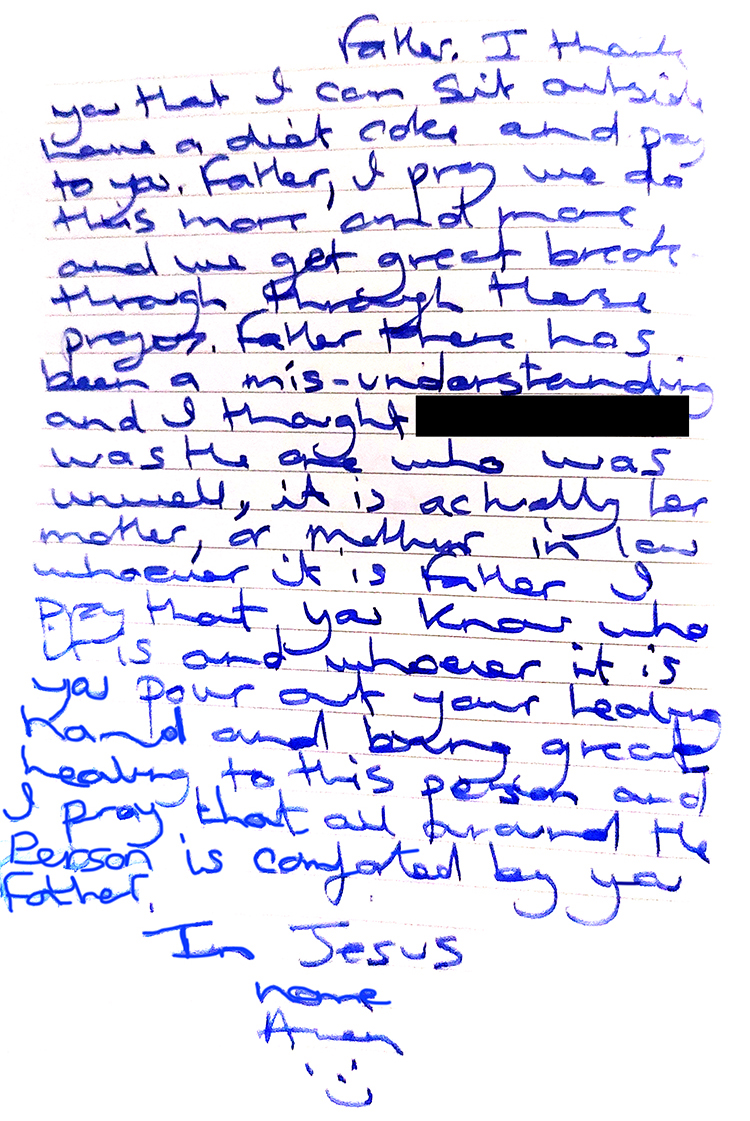 Father. I thank
you that I can sit outside
have a diet coke and pray
to you. Father, I pray we do
this more and more
and we get great break-
through through these
prayers. Father there has
been a mis-understanding
and I thought
was the one who was
unwell, it is actually her
mother, or mother in law
whoever it is Father I
pray that you know who
it is and whoever it is
you pour out your healing
hand and bring great
healing to this person and
I pray that all around the
Person is comforted by you
Father.
In Jesus
name
Amen